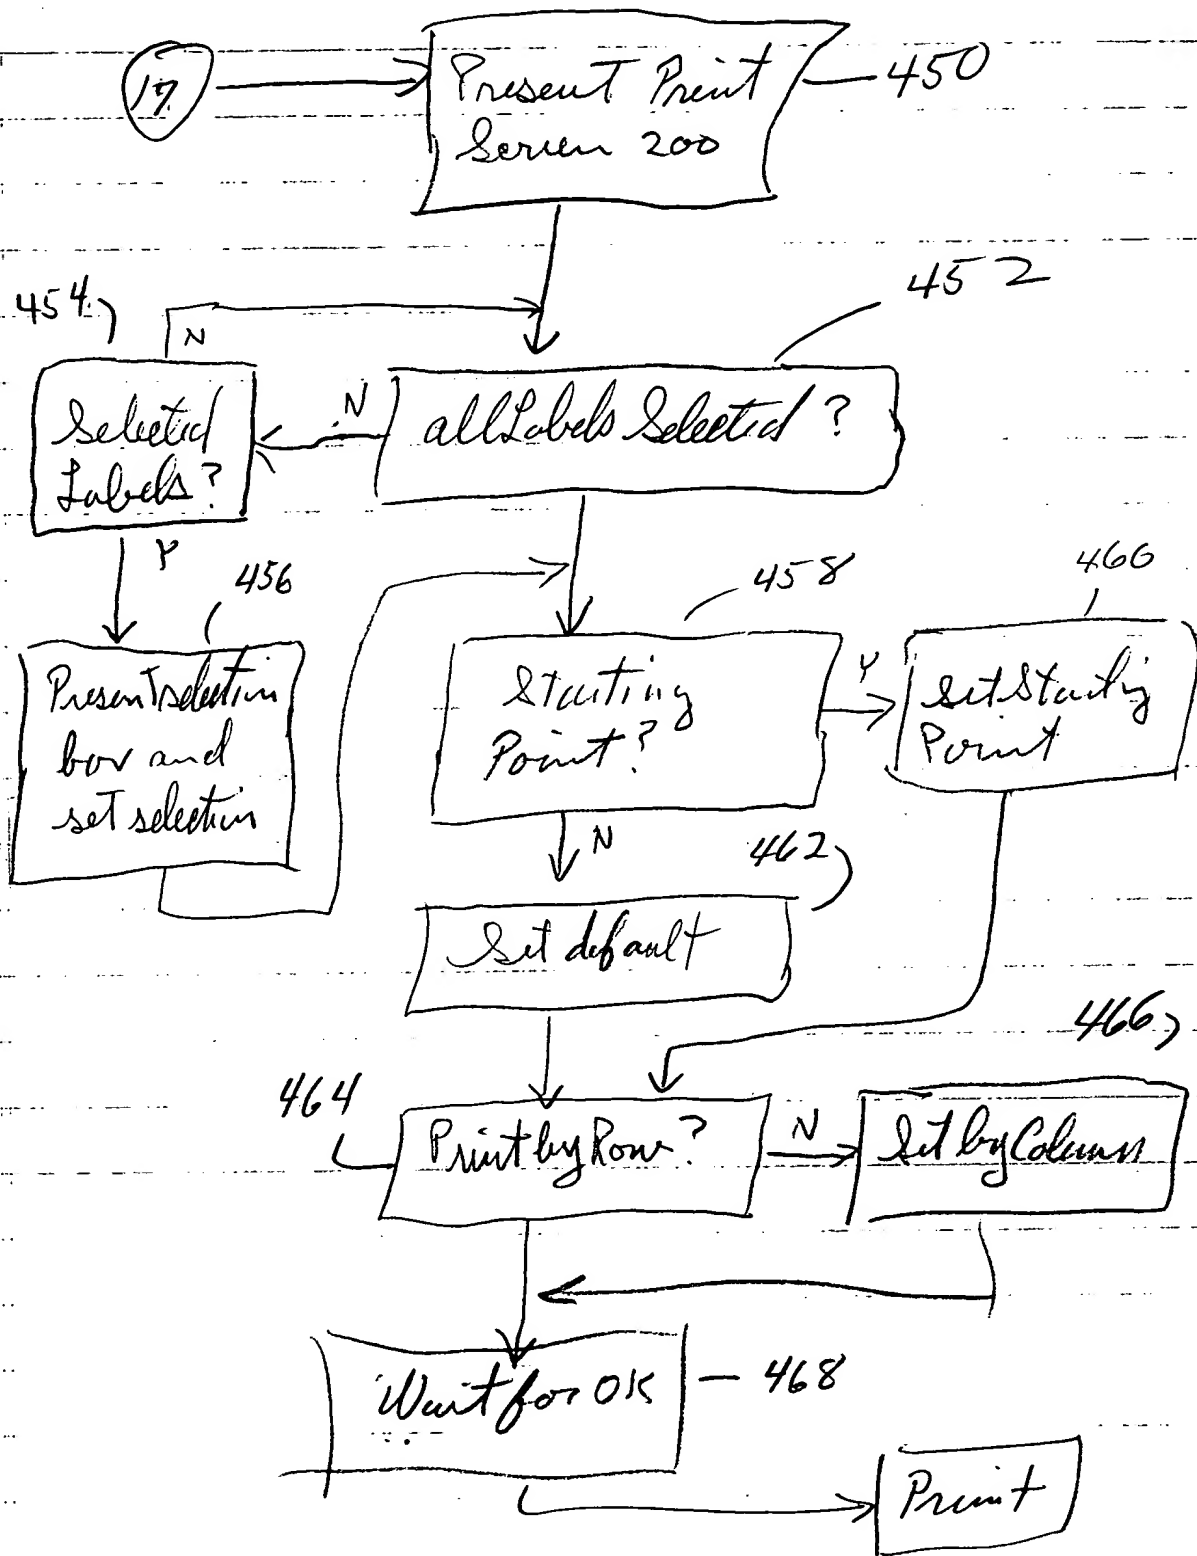 17
Present Print
Screen 200
450
452
454
N
Selected
Labels?
N
all Labels Selected?
Y
456
458
460
Present selection
box and
set selection
Starting
Point?
Y
Set Starting
Point
N
462
Set default
466
464
Print by Row?
N
Set by Column
Wait for OK
468
Print